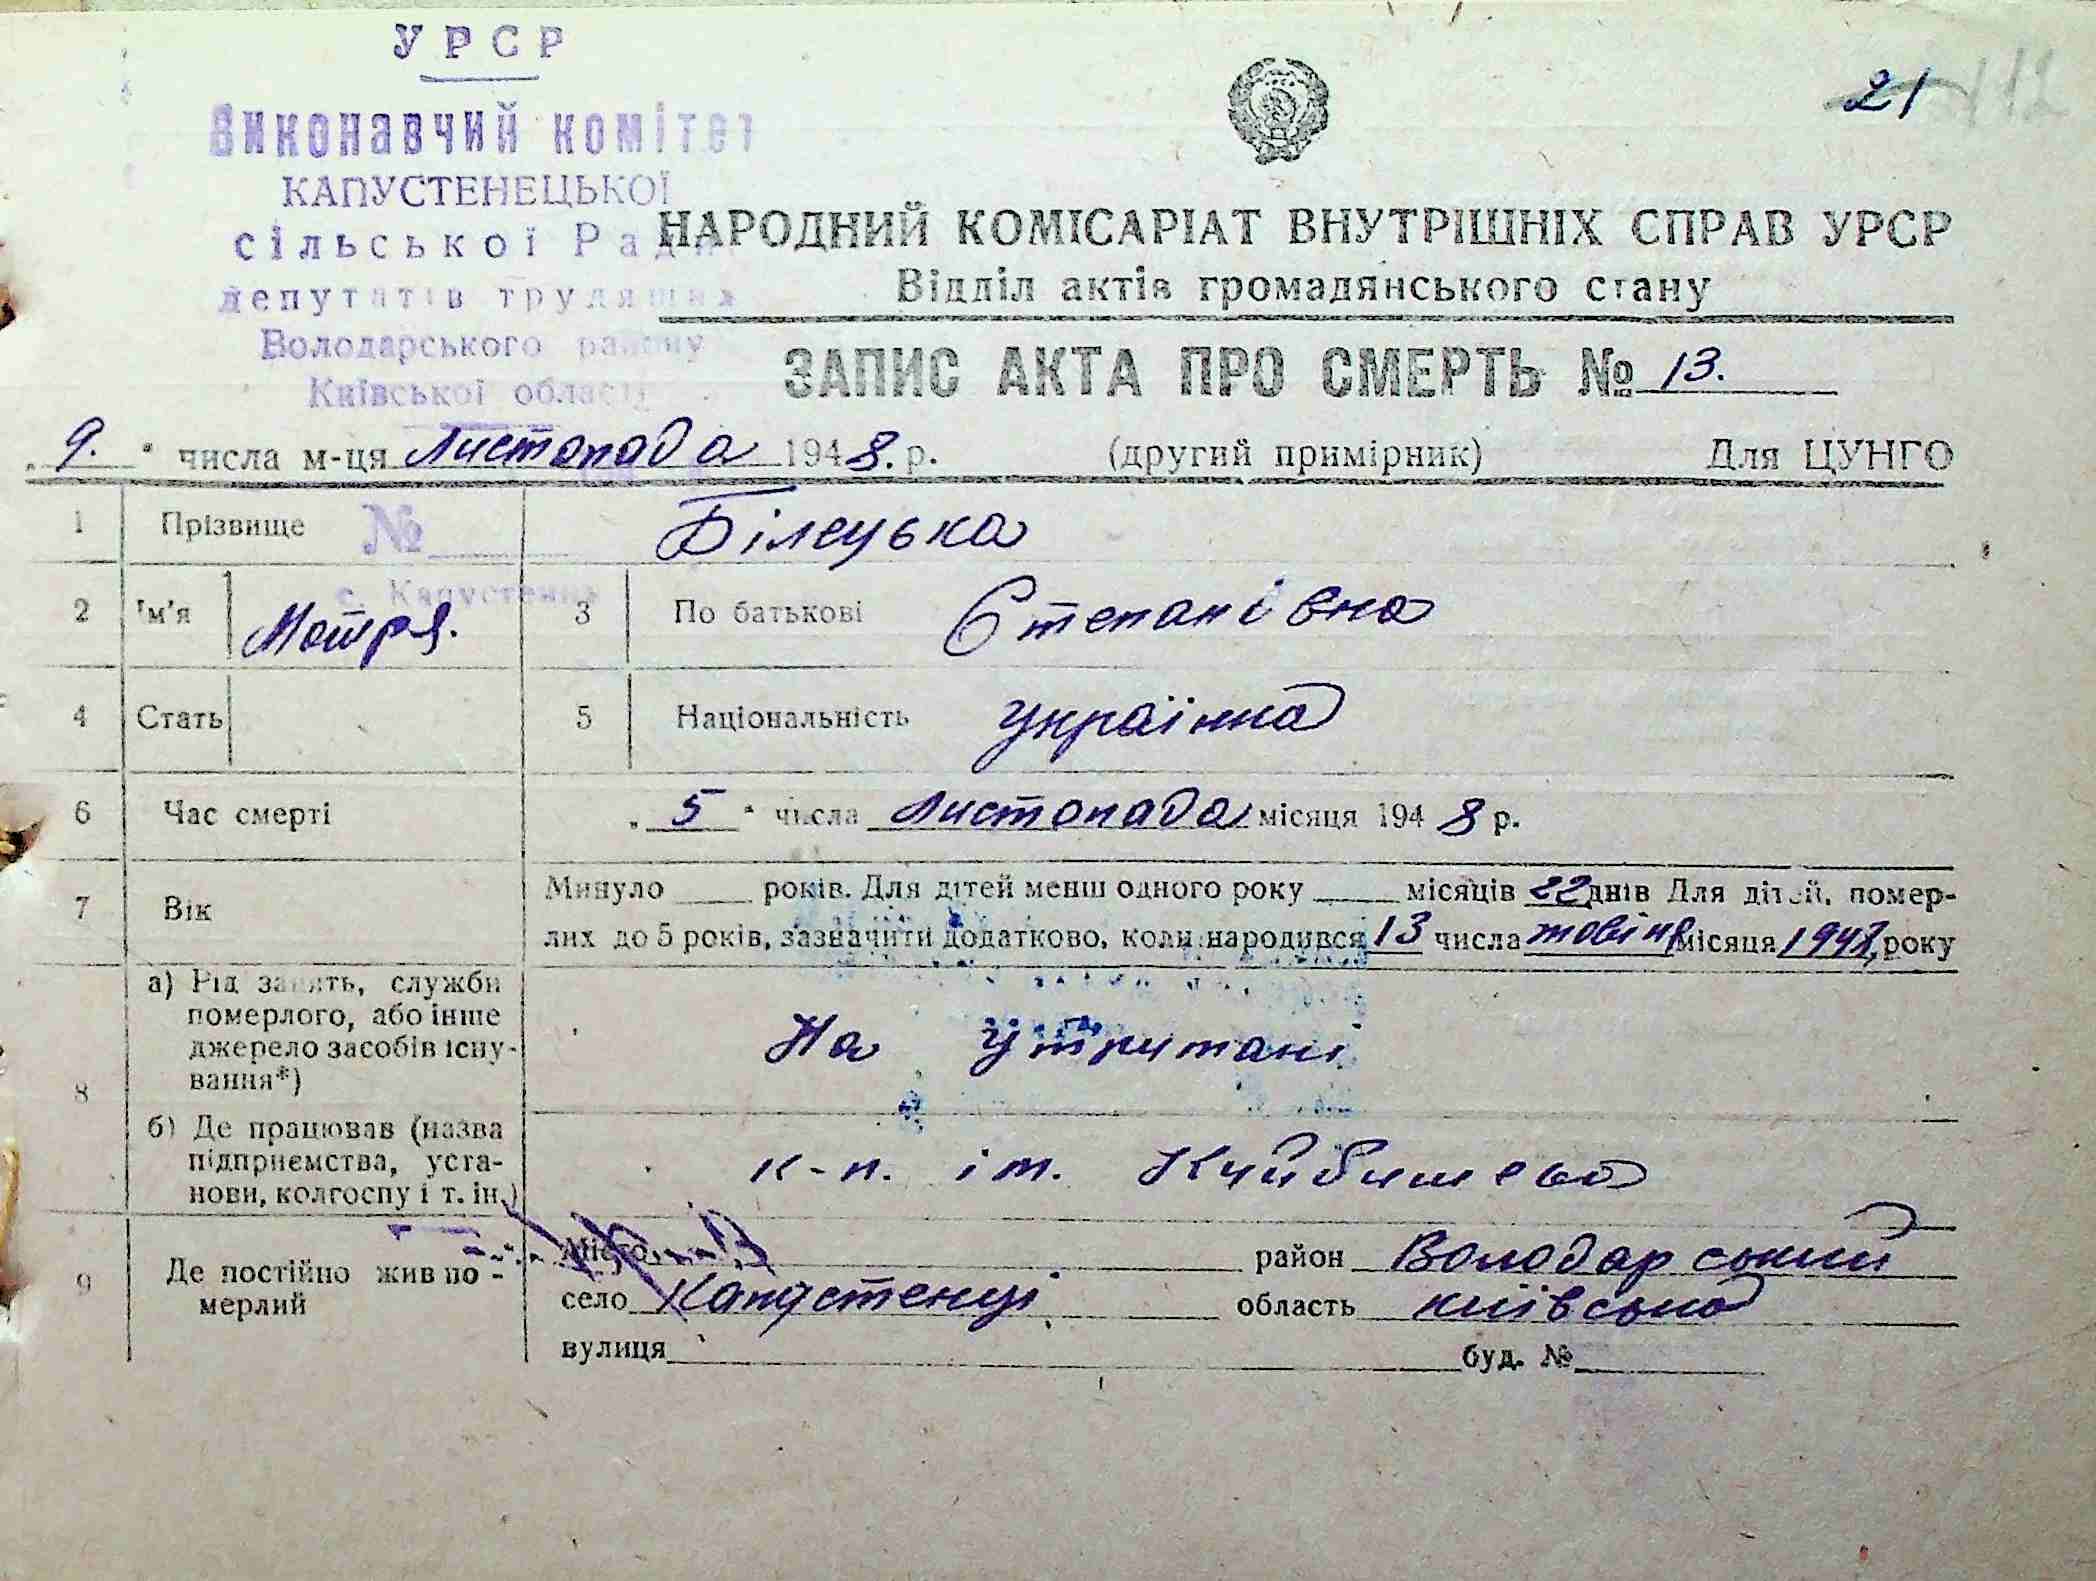 УРСР
21 112
Виконавчий комітет
КАПУСТЕНЕЦЬКОЇ
сільської Ради
депутатів трудящих
Володарського району
Київської області
НАРОДНИЙ КОМІСАРІАТ ВНУТРІШНІХ СПРАВ УРСР
Відділ актів громадянського стану
ЗАПИС АКТА ПРО СМЕРТЬ № 13.
„ 9. “ числа м-ця Листопада 1948. р. (другий примірник) Для ЦУНГО
1 Прізвище Білецька
№
с. Капустенці
2 Ім'я Мотря. 3 По батькові Степанівна
4 Стать 5 Національність українка
6 Час смерті „ 5 “ числа Листопада місяця 1948 р.
7 Вік Минуло ___ років. Для дітей менш одного року ___ місяців 22 днів Для дітей, помер-
лих до 5 років, зазначити додатково, коли народився 13 числа жовтня місяця 1948 року
8 а) Рід занять, служби померлого, або інше джерело засобів існу-вання*) На утритані
б) Де працював (назва підприємства, уста-нови, колгоспу і т. ін.) к-п. ім. Куйбишева
9 Де постійно жив по-мерлий
Місто район Володарський
село Капустенці область київська
вулиця буд. №